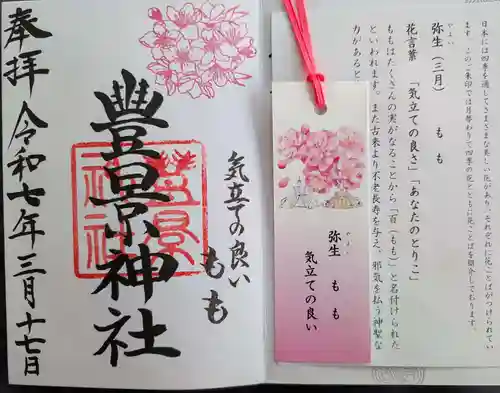 奉拝
令和七年三月十七日
豊景神社
豊景神社
気立ての良い
もも
日本には四季を通してさまざまな美しい花があり、それぞれに花ことばがつけられてい
ます。このご朱印では月替わりで四季の花とともに花ことばを紹介しております。
やよい
弥生(三月) もも
花言葉 「気立ての良さ」「あなたのとりこ」
ももはたくさんの実がなることから「百(もも)」と名付けられた
といわれます。また古来より不老長寿を与え、邪気を払う神聖な
力があると
やよい
弥生 もも
気立ての良い